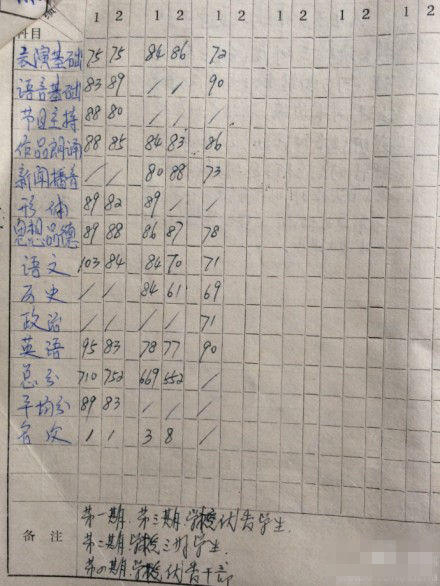 科目 1 2 1 2 1 2 1 2 1 2 1 2
表演基础 75 75 84 86 72
语音基础 83 89 / / 90
节目主持 88 80
作品朗诵 88 85 84 83 86
新闻播音 / / 80 88 73
形体 89 82 89 / /
思想品德 89 88 86 87 78
语文 103 84 84 70 71
历史 / / 84 61 69
政治 / / / / 71
英语 95 83 78 77 90
总分 710 752 669 552 /
平均分 89 83 / / /
名次 1 1 3 8 /
备注
第一期.第三期.学校优秀学生.
第二期学校三好学生.
第四期.学校优秀干部